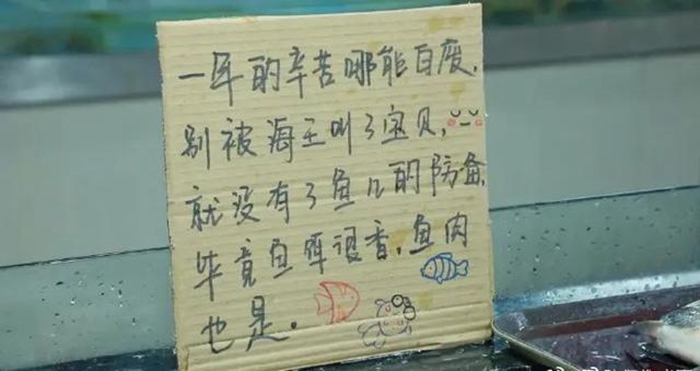 一年的辛苦哪能白废,
别被海王叫了宝贝,
就没有了鱼儿的防备,
毕竟鱼饵很香,鱼肉
也是.